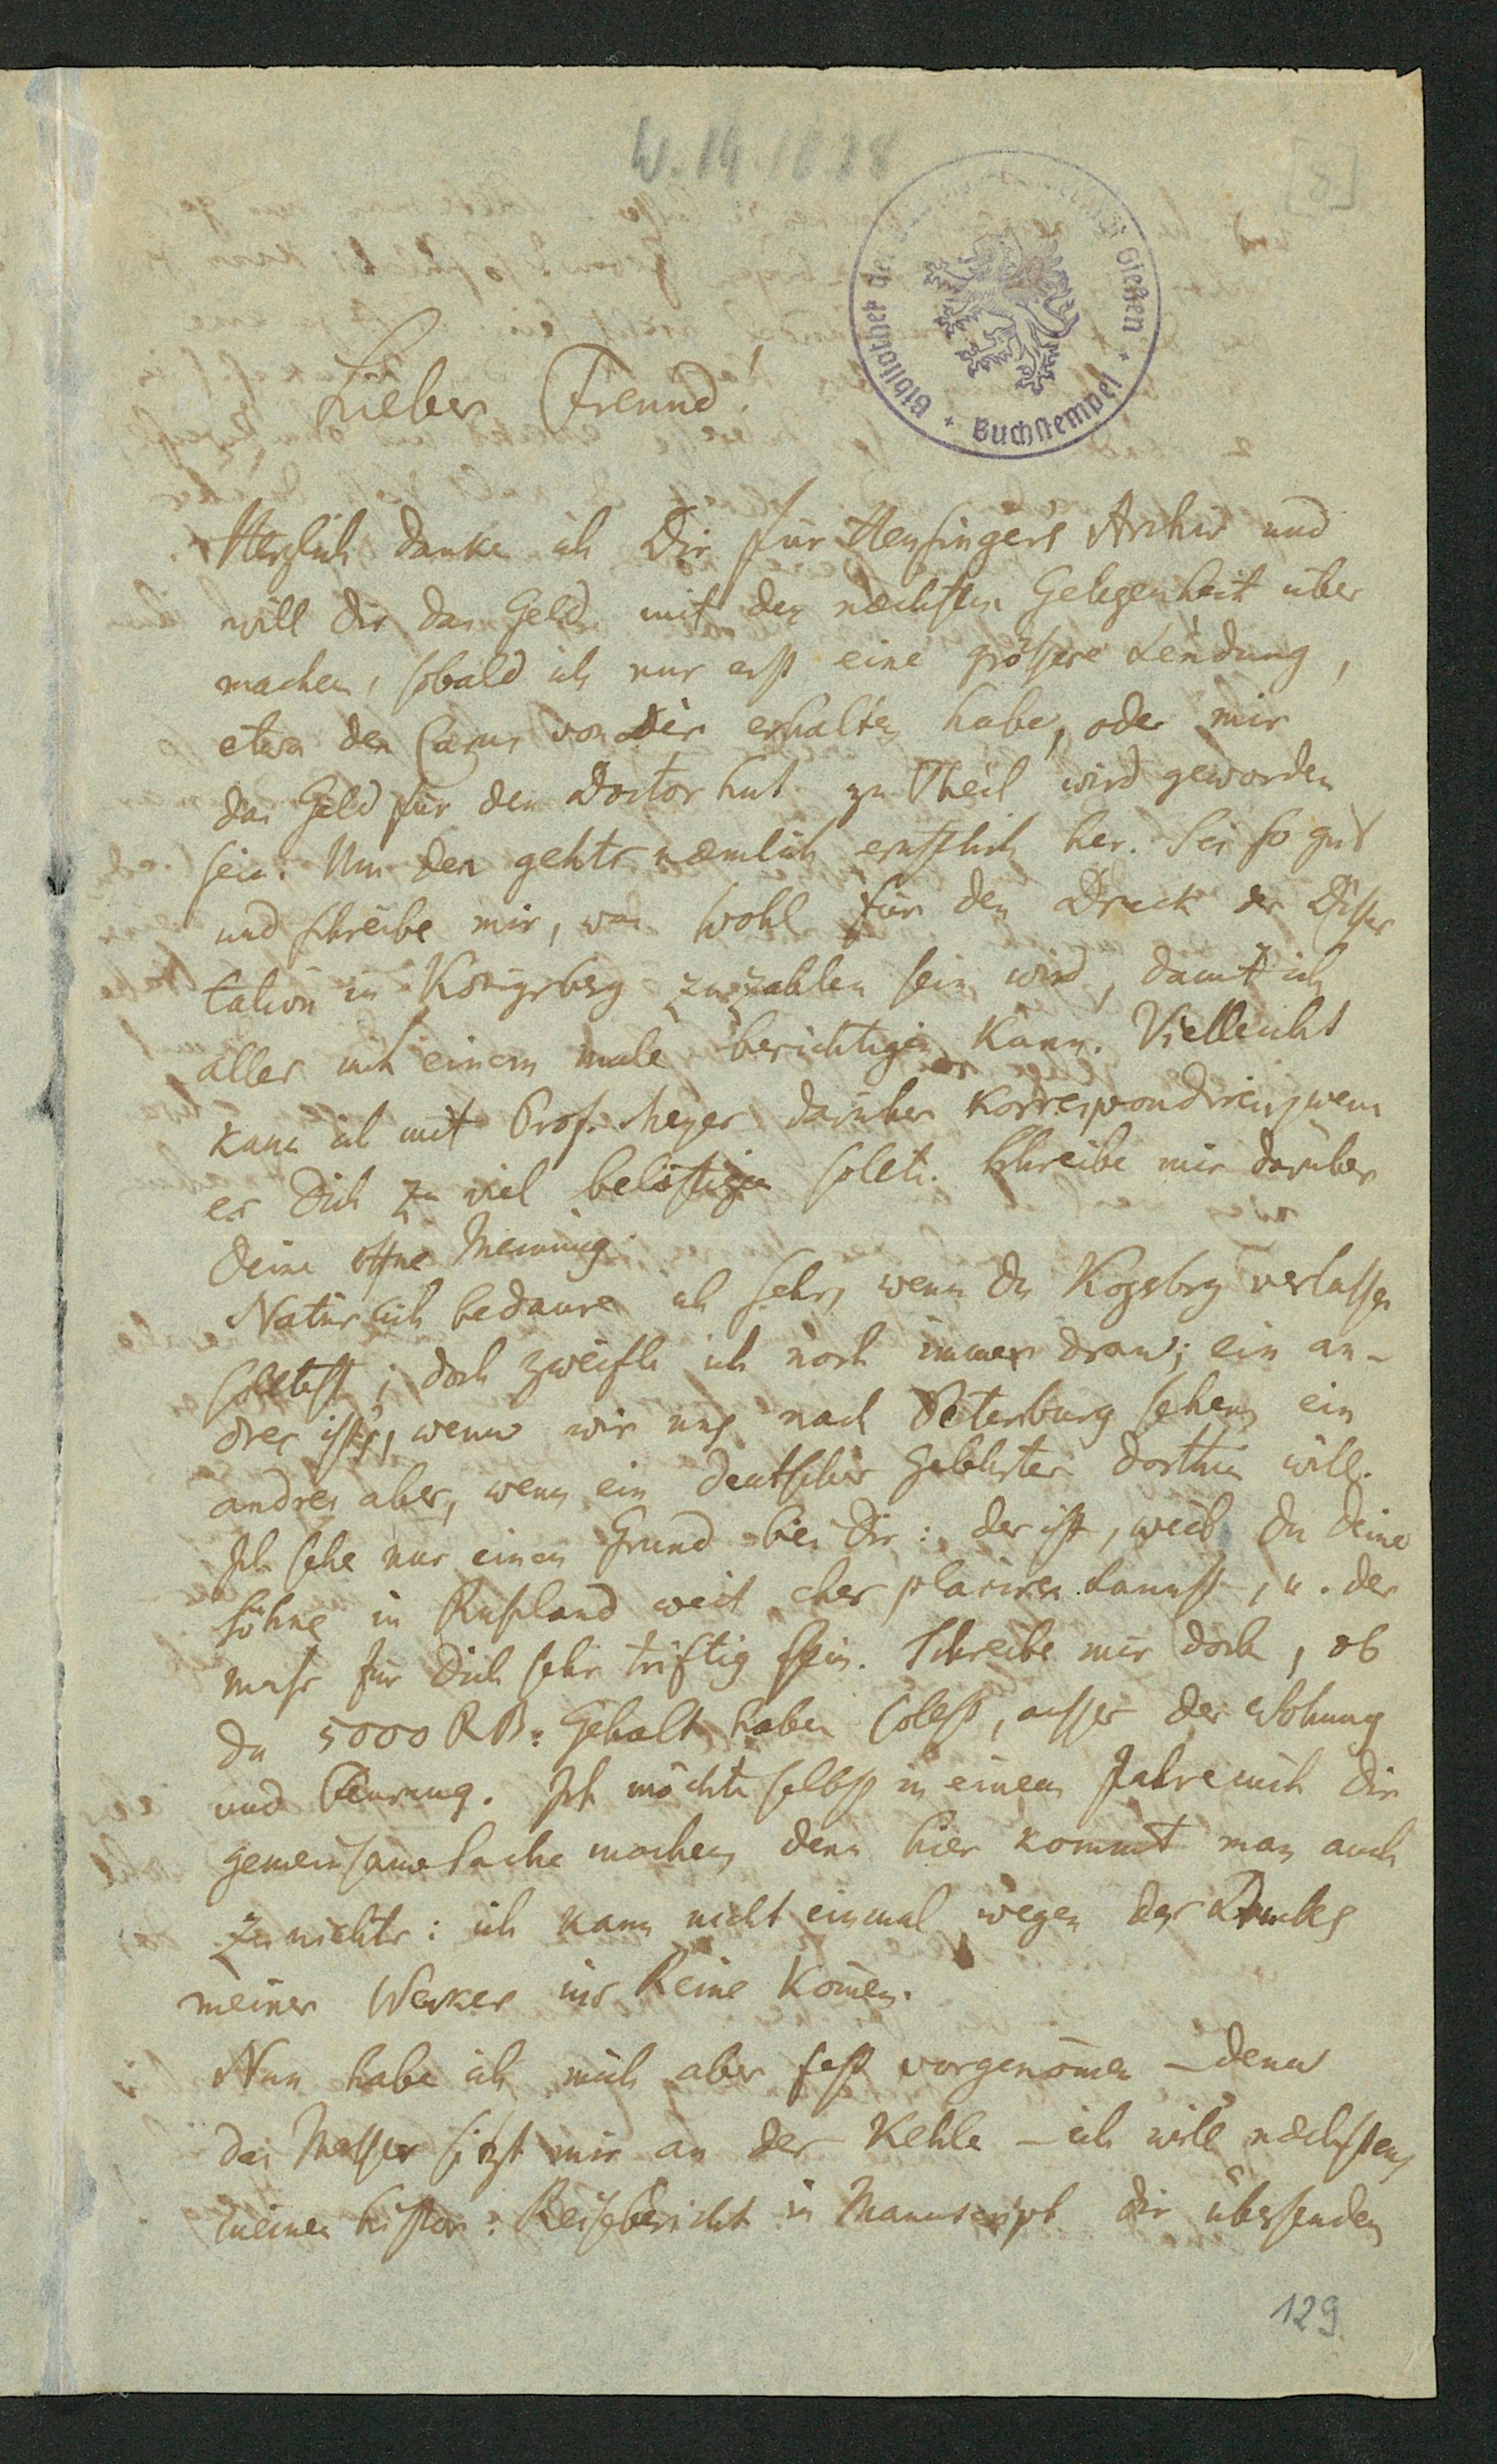 W. 14 1828
[8.]
Bibliothek der Gießen
* Buchstempel *
Lieber Freund!
Herzlich danke ich Dir für Heusingers Archiv und
will dir das Geld mit der næchsten Gelegenheit über
machen, sobald ich nur erst eine größere Sendung,
etwa den Carus von Dir erhalten habe, oder mir
das Geld für den Doctorhut zu Theil wird geworden
sein. Um den gehts næmlich ernstlich her. Sei so gut
und schreibe mir, was wohl für den Druck der Disser
tation in Königsberg zu zahlen sein wird, damit ich
alles mit einem male berichtigen kann. Vielleicht
kann ich mit Prof. Meyer darüber korrespondiren, wenn
es Dich zu viel belästigen sollte. Schreibe mir darüber
deine offne Meinung.
Natürlich bedaure ich sehr, wenn du Kngsbrg verlassen
solltest; doch zweifle ich noch immer dran; ein an-
dres ists, wenn wir uns nach Petersburg sehen, ein
andres aber, wenn ein deutscher Gelehrter dorthin will.
Ich sehe nur einen Grund bei Dir: der ist, weil du deine
Söhne in Rußland weit eher placiren kannst, u. der
muss für Dich sehr triftig sein. Schreibe mir doch, ob
du 5000 RB: Gehalt haben sollst, ausser der Wohnung
und Feurung. Ich möchte selbst in einem Jahre mit Dir
gemeinsame Sache machen, denn hier kommt man auch
zu nichts: ich kann nicht einmal wegen des Drucks
meines Werkes ins Reine komen.
Nun habe ich mich aber fest vorgenomen – denn
das Messer sitzt mir an der Kehle – ich will næchstens
meinen histor: Reisebericht in Manuscript dir übersenden
129